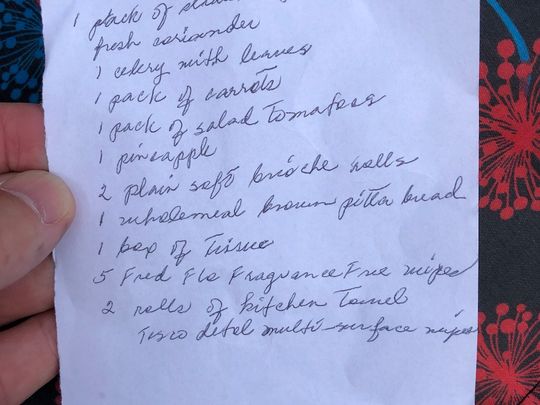 1 pack of
fresh coriander
1 celery with leaves
1 pack of carrots
1 pack of salad Tomatoes
1 pineapple
2 plain soft brioche rolls
1 wholemeal brown pitta bread
1 box of Tissue
5 Fred Flo Fragrance Free wipes
2 rolls of kitchen Towel
Tisco detol multi-surface wipes